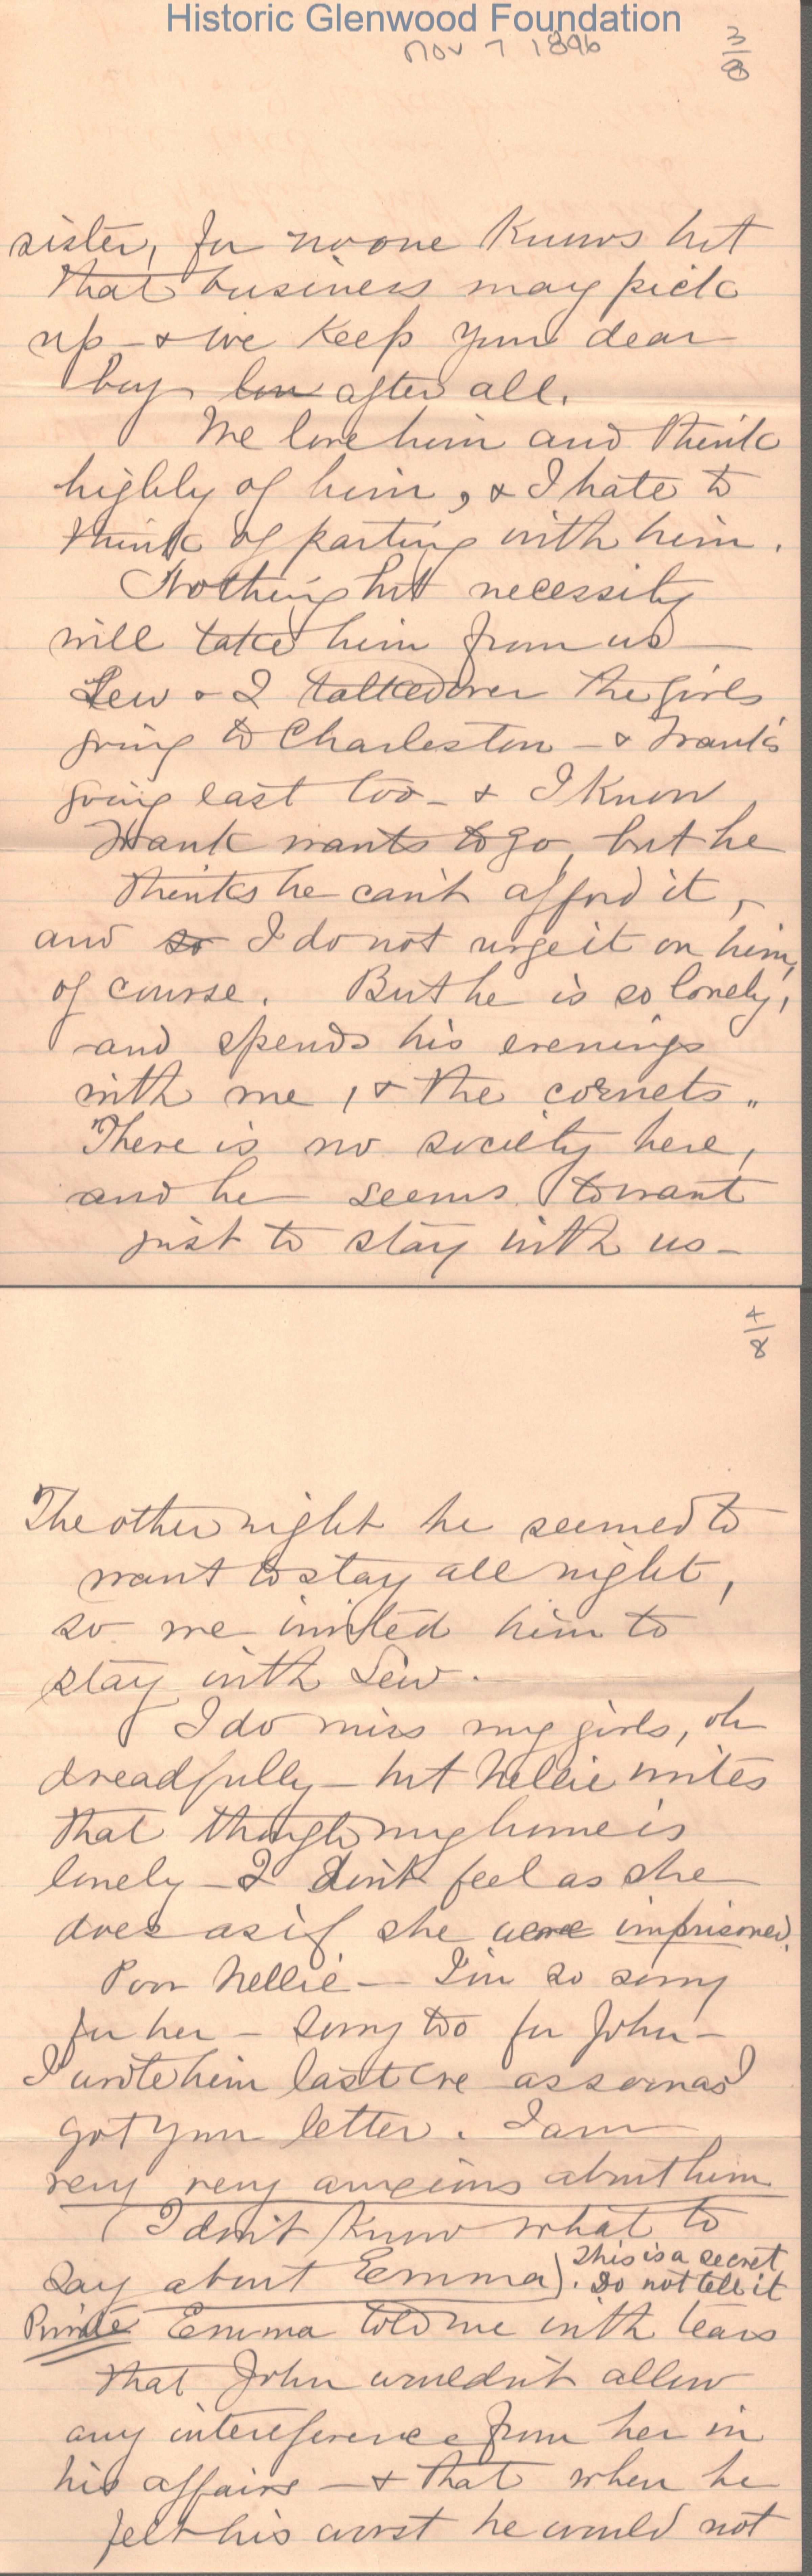 Historic Glenwood Foundation
Nov 7 1896
3/8
sister, for no one knows but
that business may pick
up - & we keep your dear
boy after all.
We love him and think
highly of him, & I hate to
think of parting with him.
Nothing but necessity
will take him from us -
Lew & I talked over the girls
going to Charleston - & Frank's
going last too - & I know
Frank wants to go, but he
thinks he can't afford it,
and so I do not urge it on him,
of course. But he is so lonely,
and spends his evenings
with me, & the cornets.
There is no society here,
and he seems to want
just to stay with us -
4/8
The other night he seemed to
want to stay all night,
so we invited him to
stay with Lew.
I do miss my girls, oh
dreadfully - but Nellie writes
that though my home is
lonely - I don't feel as she
does as if she were imprisoned.
Poor Nellie - I'm so sorry
for her - sorry too for John -
I wrote him last eve as soon as I
got your letter. I am
very very anxious about him
(I don't know what to
say about Emma). This is a secret
Do not tell it
Private Emma told me with tears
that John wouldn't allow
any interference from her in
his affairs - & that when he
felt his worst he would not